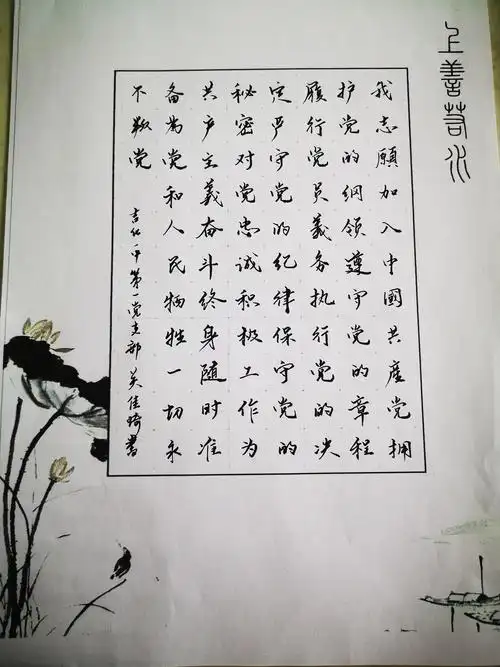 上善若水
我志願加入中國共產党拥
护党的綱领遵守党的章程
履行党员義务执行党的决
定严守党的纪律保守党的
秘密对党忠诚积极工作为
共产主義奋斗终身随时准
备為党和人民牺牲一切永
不叛党
吉化一中第一党支部 吴佳琦書